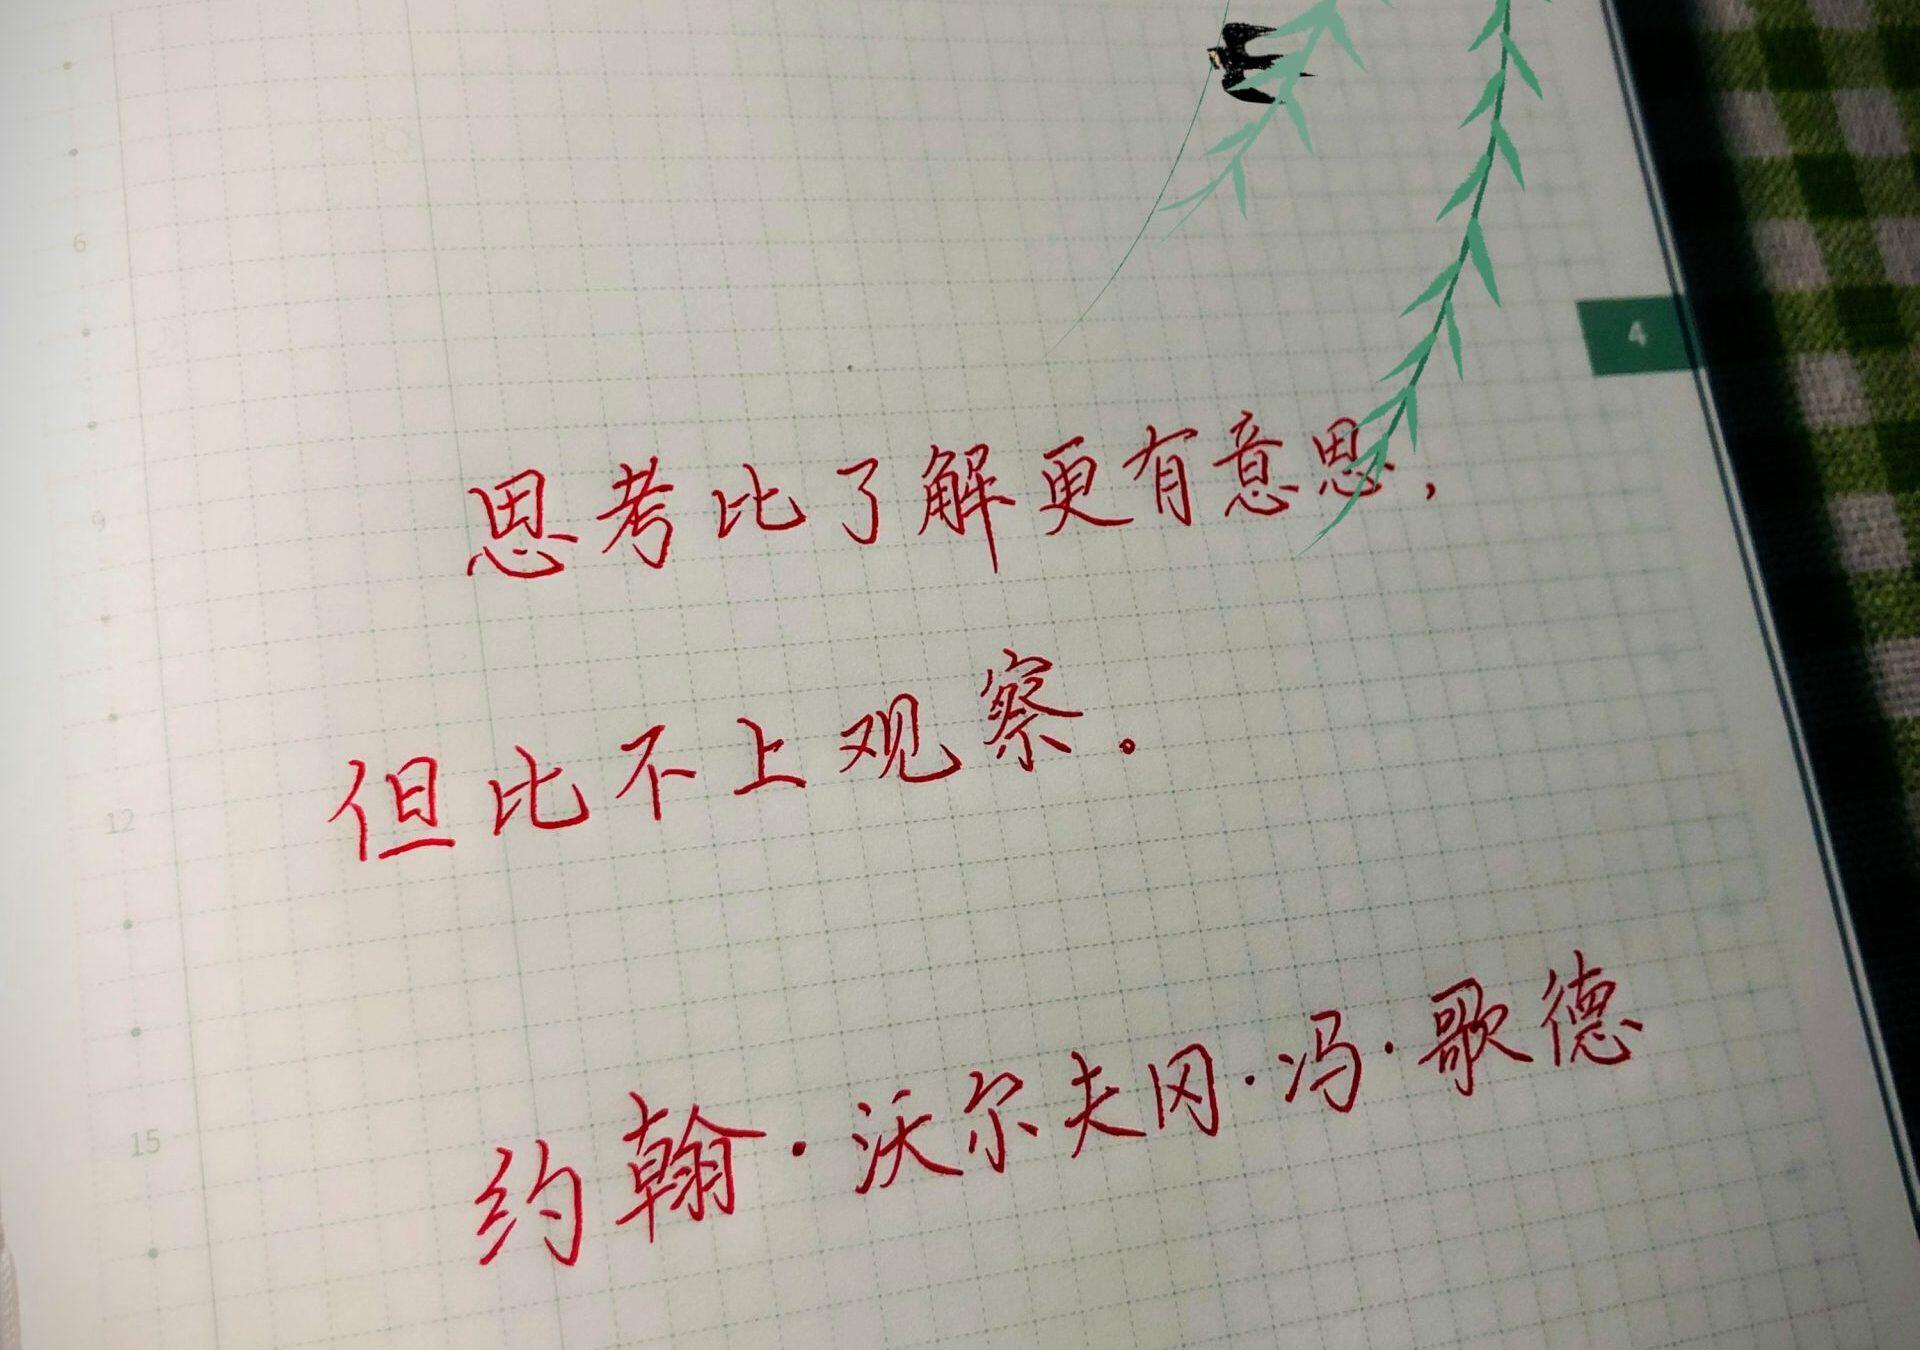 4
6
9
思考比了解更有意思，
但比不上观察。
12
15
约翰·沃尔夫冈·冯·歌德